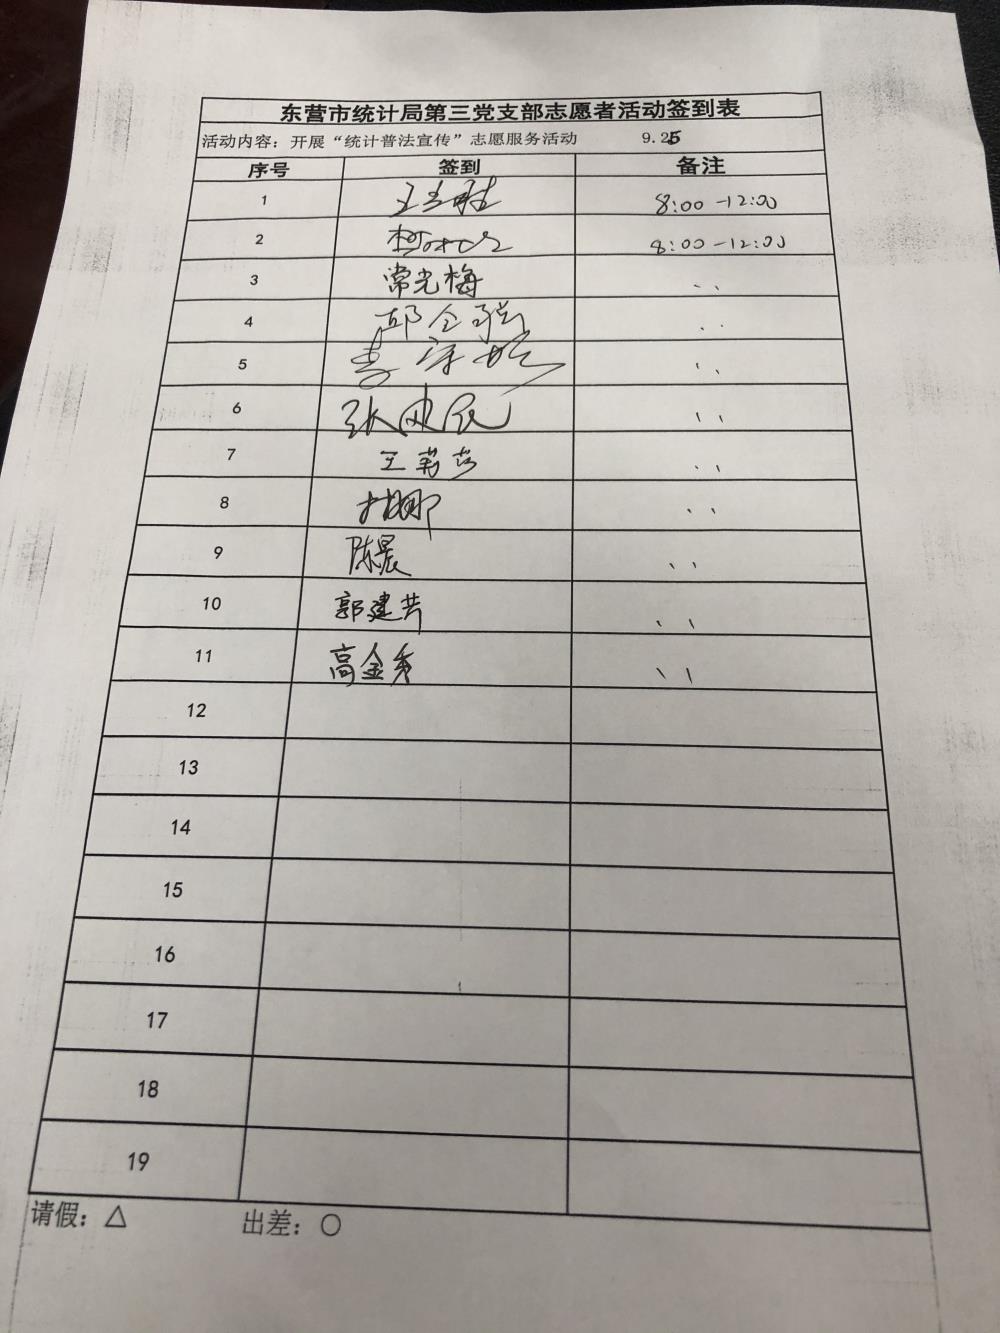 东营市统计局第三党支部志愿者活动签到表
活动内容：开展“统计普法宣传”志愿服务活动 9.25
序号 签到 备注
1 8:00-12:00
2 8:00-12:00
3 常光梅 、、
4 、、
5 、、
6 、、
7 王 、、
8 、、
9 陈晨 、、
10 郭建芸 、、
11 高金秀 、、
12
13
14
15
16
17
18
19
请假：△ 出差：○